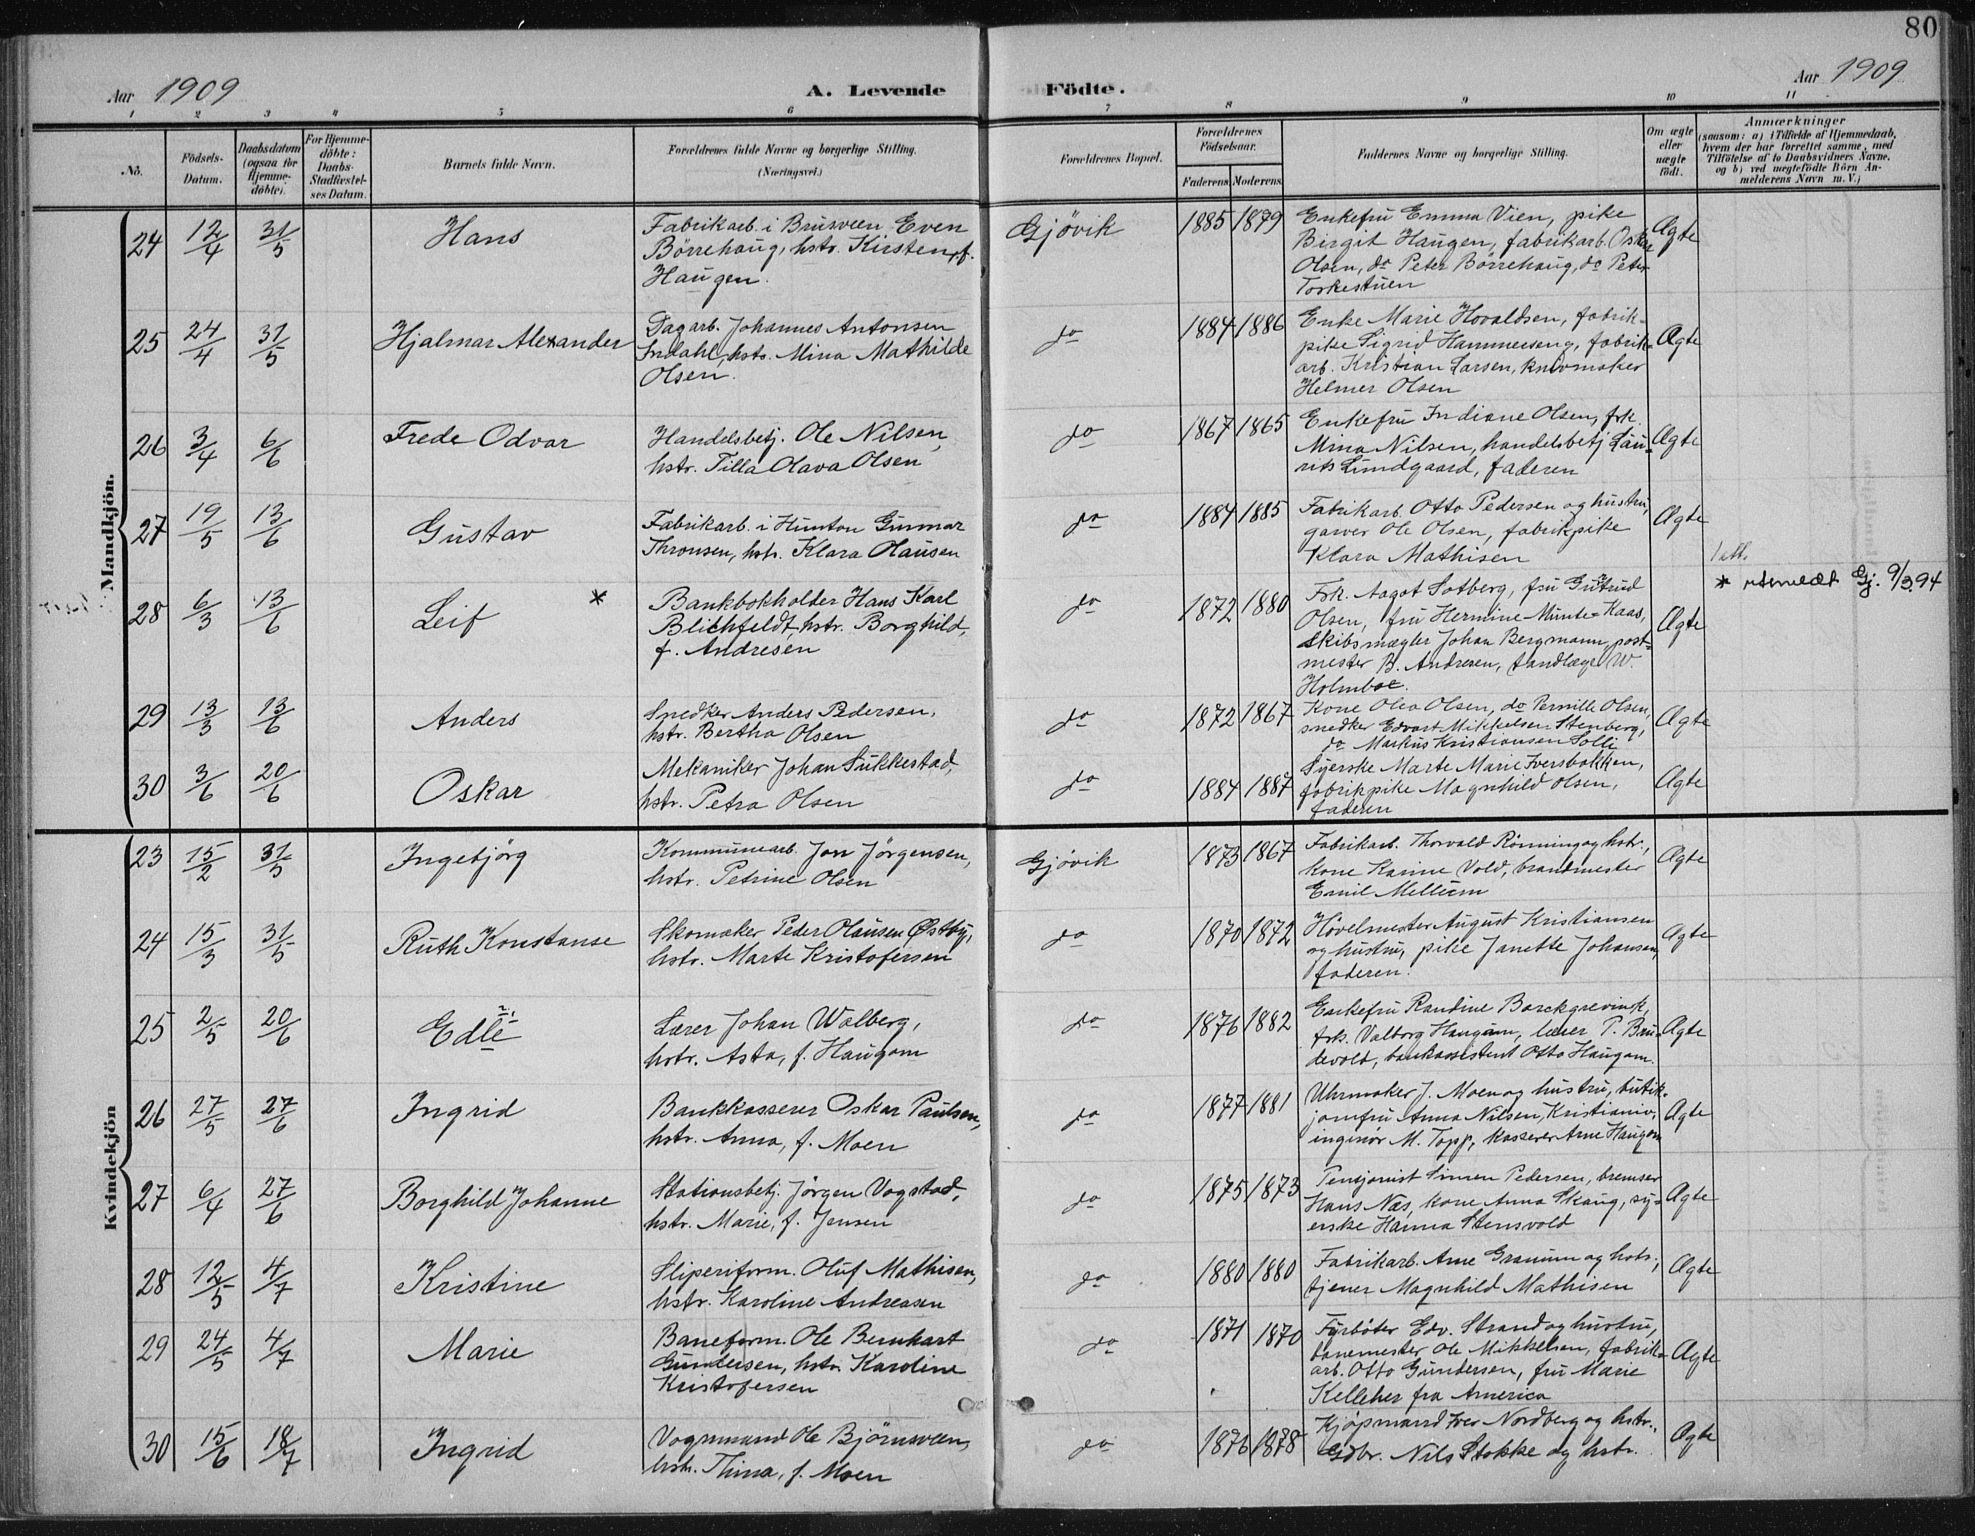 80
Aar 1909
A. Levende Födte.
Aar 1909
1 2 3 4 5 6 7 8 9 10 11
No.
Födsels-Datum.
Daabsdatum (ogsaa for Hjemmedöbte).
For Hjemmedöbte: Daabs-Stadfæstelses Datum.
Barnets fulde Navn.
Forældrenes fulde Navne og borgerlige Stilling.
(Næringsvei.)
Forældrenes Bopæl.
Forældrenes Födselsaar.
Faderens Moderens
Faddernes Navne og borgerlige Stilling.
Om ægte eller uægte født.
Anmærkninger
(saasom: a) i Tilfælde af Hjemmedaab, hvem der har forrettet samme, med Tilföielse af to Daabsvidners Navne, og b) ved uægtefödte Börn Anmelderens Navn m. V.)
Mandkjön.
24 12/4 31/5 Hans
Fabrikarb. i Brusveen Even
Börrehaug, hstr. Kirsten, f.
Haugen.
Gjövik 1885 1879
Enkefru Emma Vien, pike
Birgit Haugen, fabrikarb. Oskar
Olsen, do Peter Börrehaug, do Peter
Torkestuen
Ægte
25 24/4 31/5 Hjalmar Alexander
Dagarb. Johannes Antonsen
Indahl, hstr. Mina Mathilde
Olsen.
do 1884 1886
Enke Marie Hovaldsen, fabrik-
pike Sigrid Hammerseng, fabrik-
arb. Kristian Larsen, knivmaker
Helmer Olsen
Ægte
26 3/4 6/6 Frede Odvar
Handelsbetj. Ole Nilsen,
hstr. Tilla Olava Olsen
do 1867 1865
Enkefru Indiane Olsen, frk.
Mina Nilsen, handelsbetj. Lau-
rits Lundgaard, faderen
Ægte
27 19/5 13/6 Gustav
Fabrikarb. i Hunton Gunnar
Thronsen, hstr. Klara Olausen
do 1884 1885
Fabrikarb. Otto Pedersen og hustru,
garver Ole Olsen, fabrikpike
Klara Mathisen
Ægte
28 6/3 13/6 Leif *
Bankbokholder Hans Karl
Blichfeldt, hstr. Borghild,
f. Andresen
do 1872 1880
Frk. Aagot Sotberg, fru Gutrud
Olsen, fru Hermine Munte-Kaas,
skibsmægler Johan Bergmann, post-
mester B. Andresen, tandlæge W.
Holmboe.
Ægte
1 att.
* utmeldt Gj. 9/3.94
29 13/3 13/6 Anders
Snedker Anders Pedersen,
hstr. Bertha Olsen
do 1872 1867
Kone Olia Olsen, do Pernille Olsen,
snedker Edvart Mikkelsen Stenberg,
do Markus Kristiansen Solli
Ægte
30 3/6 20/6 Oskar
Mekaniker Johan Sukkestad,
hstr. Petra Olsen
do 1884 1887
Syerske Marte Marie Iversbakken,
fabrikpike Magnhild Olsen,
faderen
Ægte
Kvindekjön
23 15/2 31/5 Ingebjörg
Kommunearb. Jon Jörgensen,
hstr. Petrine Olsen
Gjövik 1873 1867
Fabrikarb. Thorvald Rönning og hstr.,
kone Karine Vold, brandmester
Emil Mellum
Ægte
24 15/3 31/5 Ruth Konstanse
Skomaker Peder Olausen Østby,
hstr. Marte Kristofersen
do 1870 1872
Høvelmester August Kristiansen
og hustru, pike Janette Johansen,
faderen.
Ægte
25 2/5 20/6 Edle
Lærer Johan Walberg,
hstr. Asta, f. Haugom
do 1876 1882
Enkefru Randine Borckgrevink,
frk. Valborg Haugom, lærer P. Bru-
devold, bankassistent Otto Haugom.
Ægte
26 27/5 27/6 Ingrid
Bankkasserer Oskar Paulsen,
hstr. Anna, f. Moen
do 1877 1881
Uhrmaker J. Moen og hustru, butik-
jomfru Anna Nilsen, Kristiania,
ingeniør M. Topp, kasserer Arne Haugom
Ægte
27 6/4 27/6 Borghild Johanne
Stationsbetj. Jörgen Vogstad,
hstr. Marie, f. Jensen
do 1875 1873
Pensjonist Simen Pedersen, bremser
Hans Næs, kone Anna Skaug, sy-
erske Hanna Stensvold
Ægte
28 12/5 4/7 Kristine
Sliperiform. Oluf Mathisen,
hstr. Karoline Andreasen
do 1880 1880
Fabrikarb. Arne Granum og hstr.,
tjener Magnhild Mathisen
Ægte
29 24/5 4/7 Marie
Baneform. Ole Bernhart
Gundersen, hstr. Karoline
Kristofersen
do 1871 1870
Fyrböter Edv. Strand og hustru,
banemester Ole Mikkelsen, fabrik-
arb. Otto Gundersen, fru Marie
Kelleher fra America
Ægte
30 15/6 18/7 Ingrid
Vognmand Ole Björnsveen,
hstr. Thina, f. Moen
do 1876 1878
Kjöpmand Iver Nordberg og hstr.,
Gdbr. Nils Stokke og hstr.
Ægte